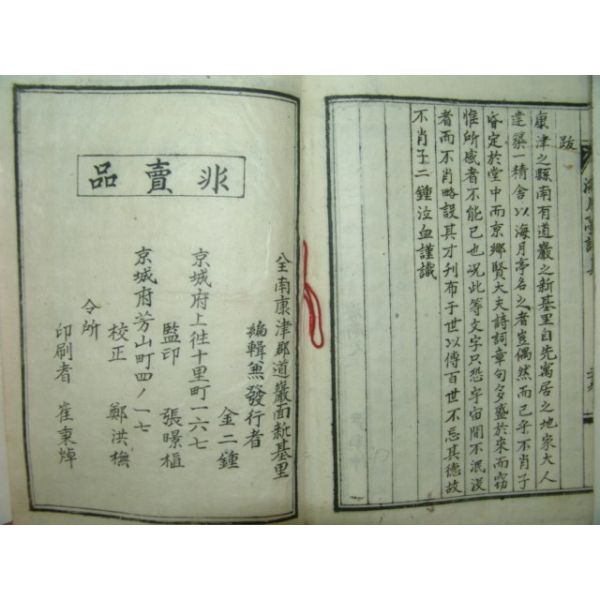 跋
康津之縣南有道巖之新基里自先寓居之地家大人
建築一精舍以海月亭名之者豈偶然而已乎不肖子
昏定於堂中而京鄉賢大夫詩詞章句多盛於來而窃
惟所感者不能已也况此等文字只恐宇宙間不泯没
者而不肖略設其才刋布于世以傳百世不忘其德故
不肖子二鍾泣血謹識
海月亭詩
非賣品
全南康津郡道巖面新基里
編輯兼發行者
金二鍾
京城府上往十里町一六七
監印 張暻植
京城府芳山町四ノ一七
校正 鄭洪橅
仝所
印刷者 崔秉焯